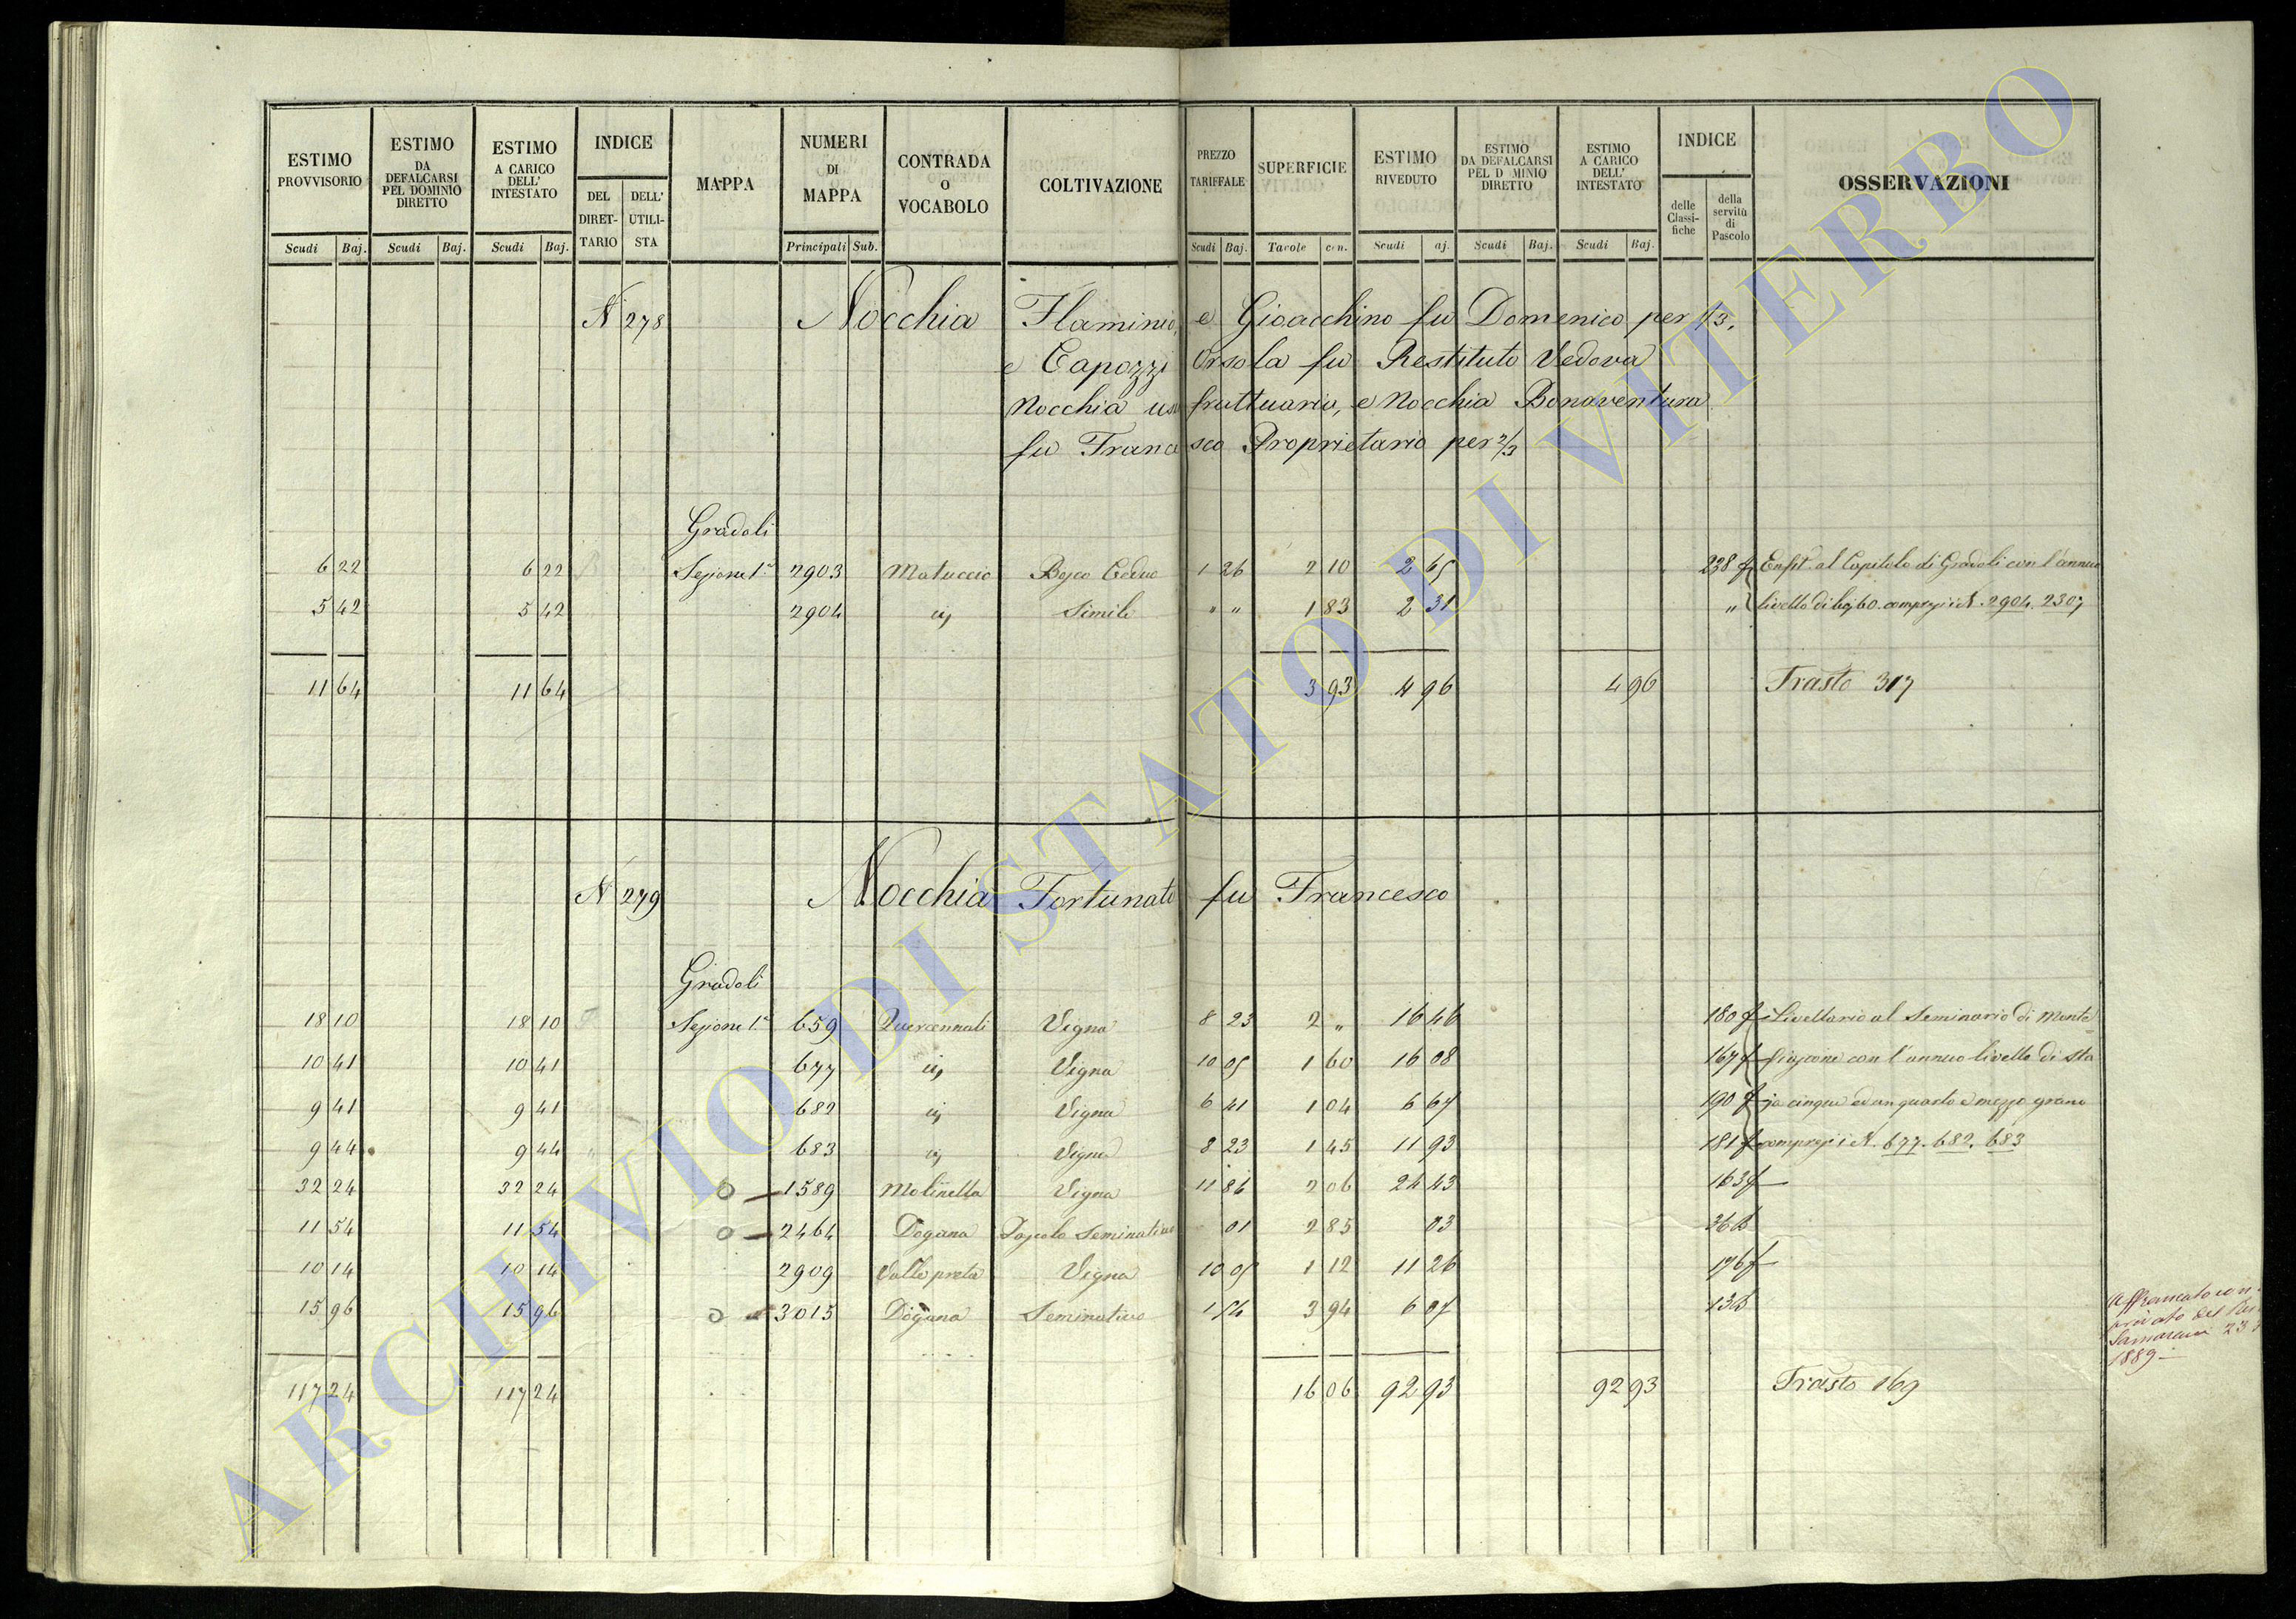 ESTIMO PROVVISORIO | ESTIMO DA DEFALCARSI PEL DOMINIO DIRETTO | ESTIMO A CARICO DELL' INTESTATO | INDICE | MAPPA | NUMERI DI MAPPA | CONTRADA O VOCABOLO | COLTIVAZIONE | PREZZO TARIFFALE | SUPERFICIE | ESTIMO RIVEDUTO | ESTIMO DA DEFALCARSI PEL D MINIO DIRETTO | ESTIMO A CARICO DELL' INTESTATO | INDICE | OSSERVAZIONI
DEL DIRETTARIO | DELL' UTILISTA | delle Classifiche | della servitù di Pascolo
Scudi | Baj. | Scudi | Baj. | Scudi | Baj. | Principali | Sub. | Scudi | Baj. | Tavole | cen. | Scudi | aj. | Scudi | Baj. | Scudi | Baj.
N 278 Nocchia Flaminio, e Gioacchino fu Domenico per 1/3,
e Capozzi Orsola fu Restituto Vedova
Nocchia usufruttuaria, e Nocchia Bonaventura
fu Francesco Proprietario per 2/3
Gradoli
6 22 | 6 22 | Sezione 1a | 2903 | Matuccio | Bosco Ceduo | 1 26 | 2 10 | 2 65 | 238 f | Enfit. al Capitolo di Gradoli con l'annuo
5 42 | 5 42 | 2904 | Simile | " " | 1 83 | 2 31 | " | livello di bj 60 compresi i N. 2904. 2307
11 64 | 11 64 | 3 93 | 4 96 | 4 96 | Trasto 317
N 279 Nocchia Fortunato fu Francesco
Gradoli
18 10 | 18 10 | Sezione 1a | 659 | Quercennali | Vigna | 8 23 | 2 " | 16 46 | 180 f | Livellario al Seminario di Monte
10 41 | 10 41 | 677 | Vigna | 10 05 | 1 60 | 16 08 | 167 f | fiascone con l'annuo livello di sta
9 41 | 9 41 | 682 | Vigna | 6 41 | 1 04 | 6 67 | 190 f | ja cinque ed un quarto e mezzo grano
9 44 | 9 44 | 683 | Vigna | 8 23 | 1 45 | 11 93 | 181 f | compresi i N. 677. 682. 683
32 24 | 32 24 | 1589 | Molinella | Vigna | 11 86 | 2 06 | 24 43 | 163 f
11 54 | 11 54 | 2464 | Dogana | Pascolo Seminativo | 01 | 2 85 | 03
10 14 | 10 14 | 2909 | Valle preta | Vigna | 10 05 | 1 12 | 11 26 | 176 f
15 96 | 15 96 | 3015 | Dogana | Seminativo | 1 54 | 3 94 | 6 07
117 24 | 117 24 | 16 06 | 92 93 | 92 93 | Trasto 169
Affrancato con
1889
ARCHIVIO DI STATO DI VITERBO